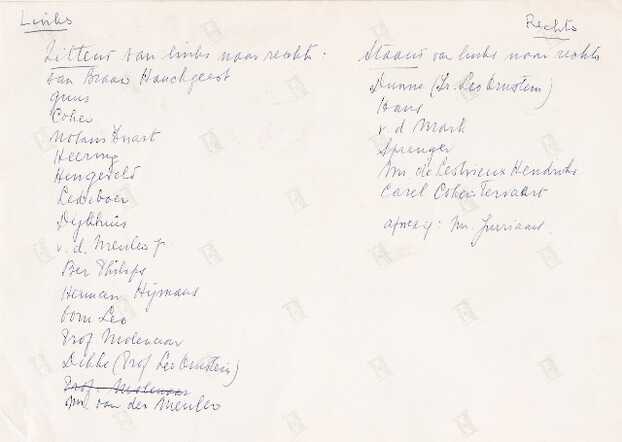 Links
Zittend van links naar rechts.
van Braam Houckgeest
Guus
Cohen
Nolans Enast
Heering
Hengeveld
Ledeboer
Dijkhuis
v. d. Meulen Jr
Ber Philips
Herman Hijmans
Oom Leo
Prof Molenaar
Dikke (Prof Leo Ornstein)
Prof. Molenaar
Mr van der Meulen
Rechts
Staand van links naar rechts
Dunne (Dr. Leo Ornstein)
Hans
v. d Mark
Sprenger
Mr de Lestrieux Hendrichs
Carel Cohen Tervaert
afwezig: Mr. Jurriaans.